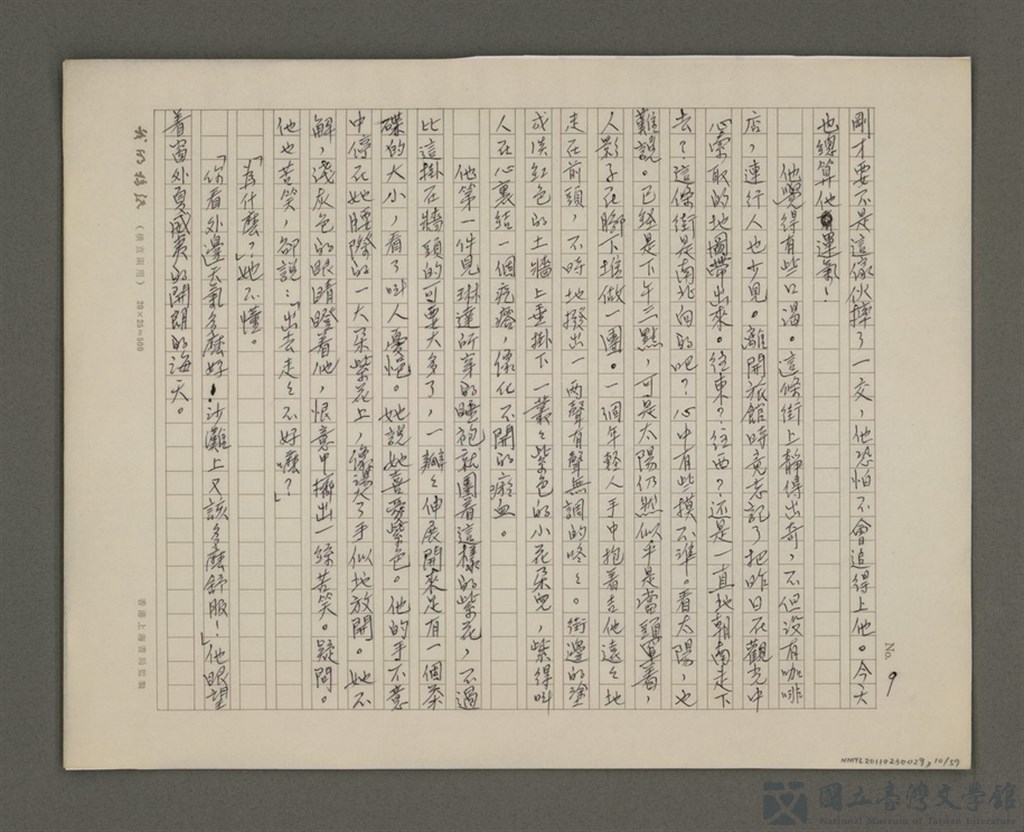 No. 9
剛才要不是這傢伙摔了一交，他恐怕不會追得上他。今天
也總算他有運氣！
他覺得有些口渴。這條街上靜得出奇，不但沒有咖啡
店，連行人也少見。離開旅館時竟忘記了把昨日在觀光中
心索取的地圖帶出來。往東？往西？还是一直地朝南走下
去了這條街是南北向的吧？心中有些摸不準。看太陽，也
難說。已經是下午三點，可是太陽仍然似乎是當頭罩着，
人影子在腳下堆做一團。一個年輕人手中抱着吉他遠々地
走在前頭，不時地撥出一两聲有聲無調的咚々。街邊的塗
成淡紅色的土牆上垂掛下一叢々紫色的小花朵兒，紫得叫
人在心裏結一個疙瘩，像化不開的瘀血。
他第一件見琳達所穿的睡袍就圍着這樣的紫花，不過
比這掛在牆頭的可要大多了，一瓣々伸展開來足有一個茶
碟的大小，看了叫人憂悒。她說她喜愛紫色。他的手不意
中停在她腰際的一大朵紫花上，像燙了手似地放開。她不
解，淺灰色的眼睛瞪着他，恨意中擠出一絲苦笑。疑問。
他也苦笑，卻說：「出去走々不好嚒？」
「為什麼？」她不懂。
「你看外邊天氣多麼好！沙灘上又該多麼舒服！」他眼望
着窗外夏威夷的開朗的海天。
（橫直兩用） 20×25=500
香港上海書局監製
NMTL20110230029, 10/59
國立臺灣文學館
National Museum of Taiwan Literature